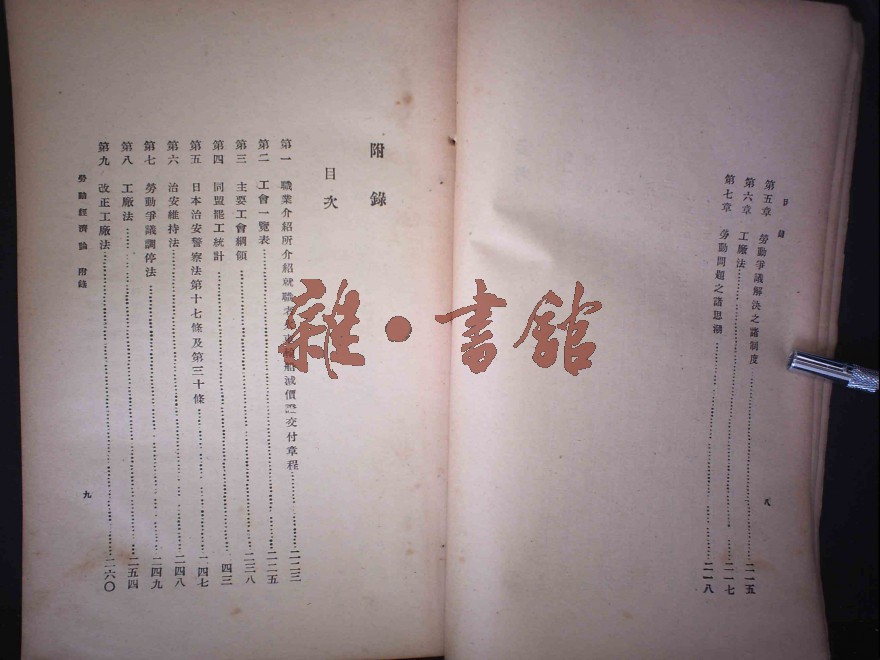 目錄
第五章 勞動爭議解決之諸制度……二一五
第六章 工廠法……二一七
第七章 勞動問題之諸思潮……二一八
八
附錄
目次
第一 職業介紹所介紹就職者船減價證交付章程……二二三
第二 工會一覽表……二二五
第三 主要工會綱領……二三八
第四 同盟罷工統計……四三
第五 日本治安警察法第十七條及第三十條……二四七
第六 治安維持法……二四八
第七 勞動爭議調停法……二四九
第八 工廠法……二五四
第九 改正工廠法……二六〇
勞動經濟論 附錄
九
雜·書館